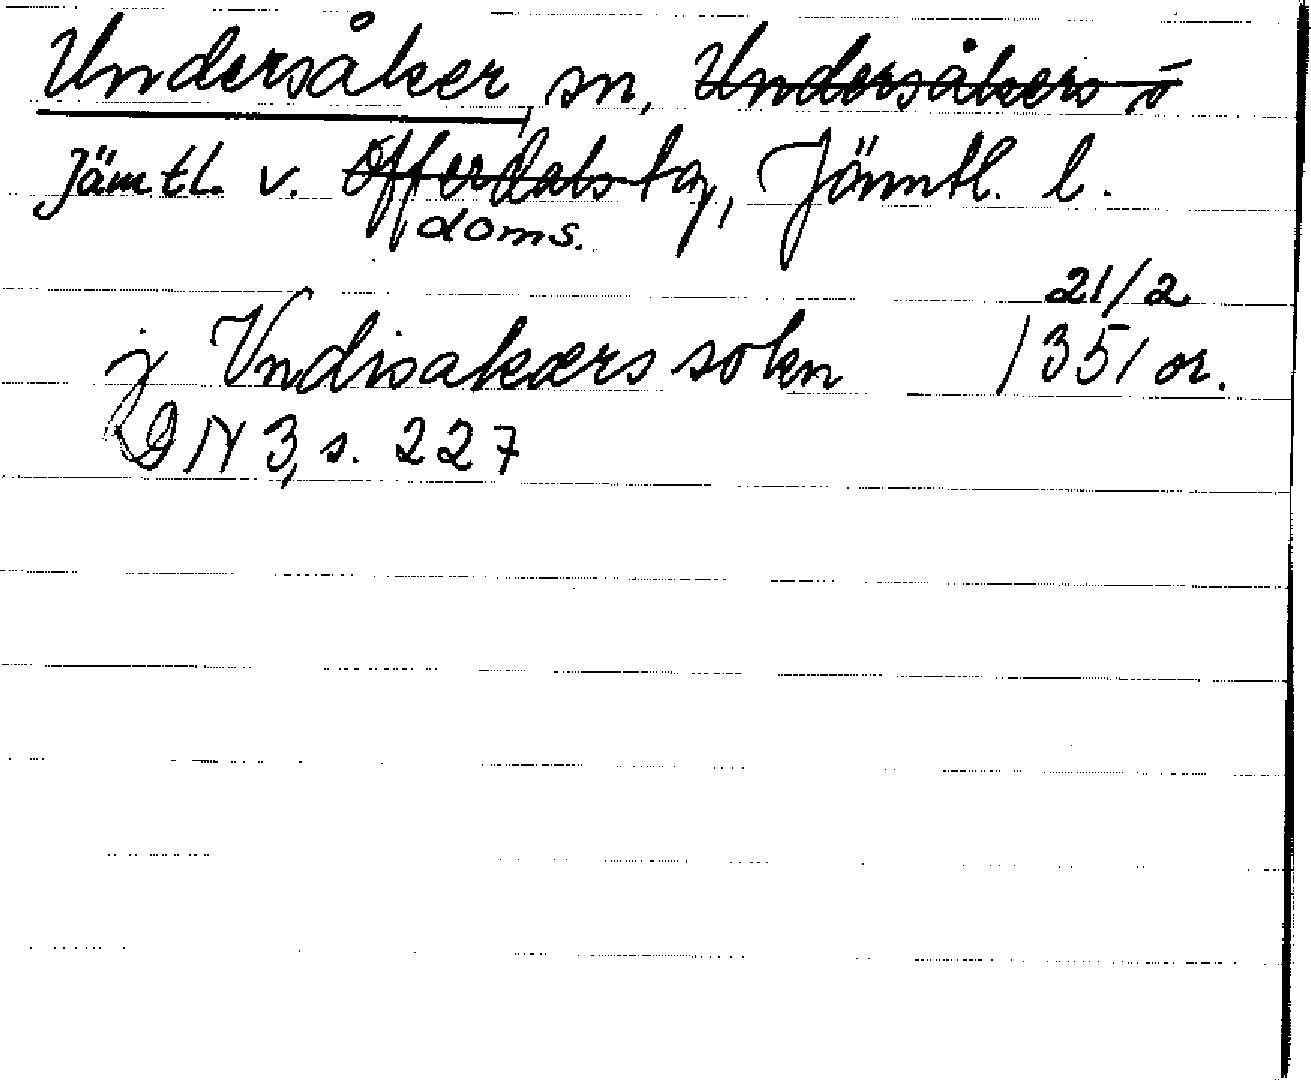 Undersåker, sn, Undersåkers o
Jämtl. v. Offerdals tg, Jämtl. l.
doms.
21/2
j Vndisakærs sokn 1351 or.
DN 3, s. 227